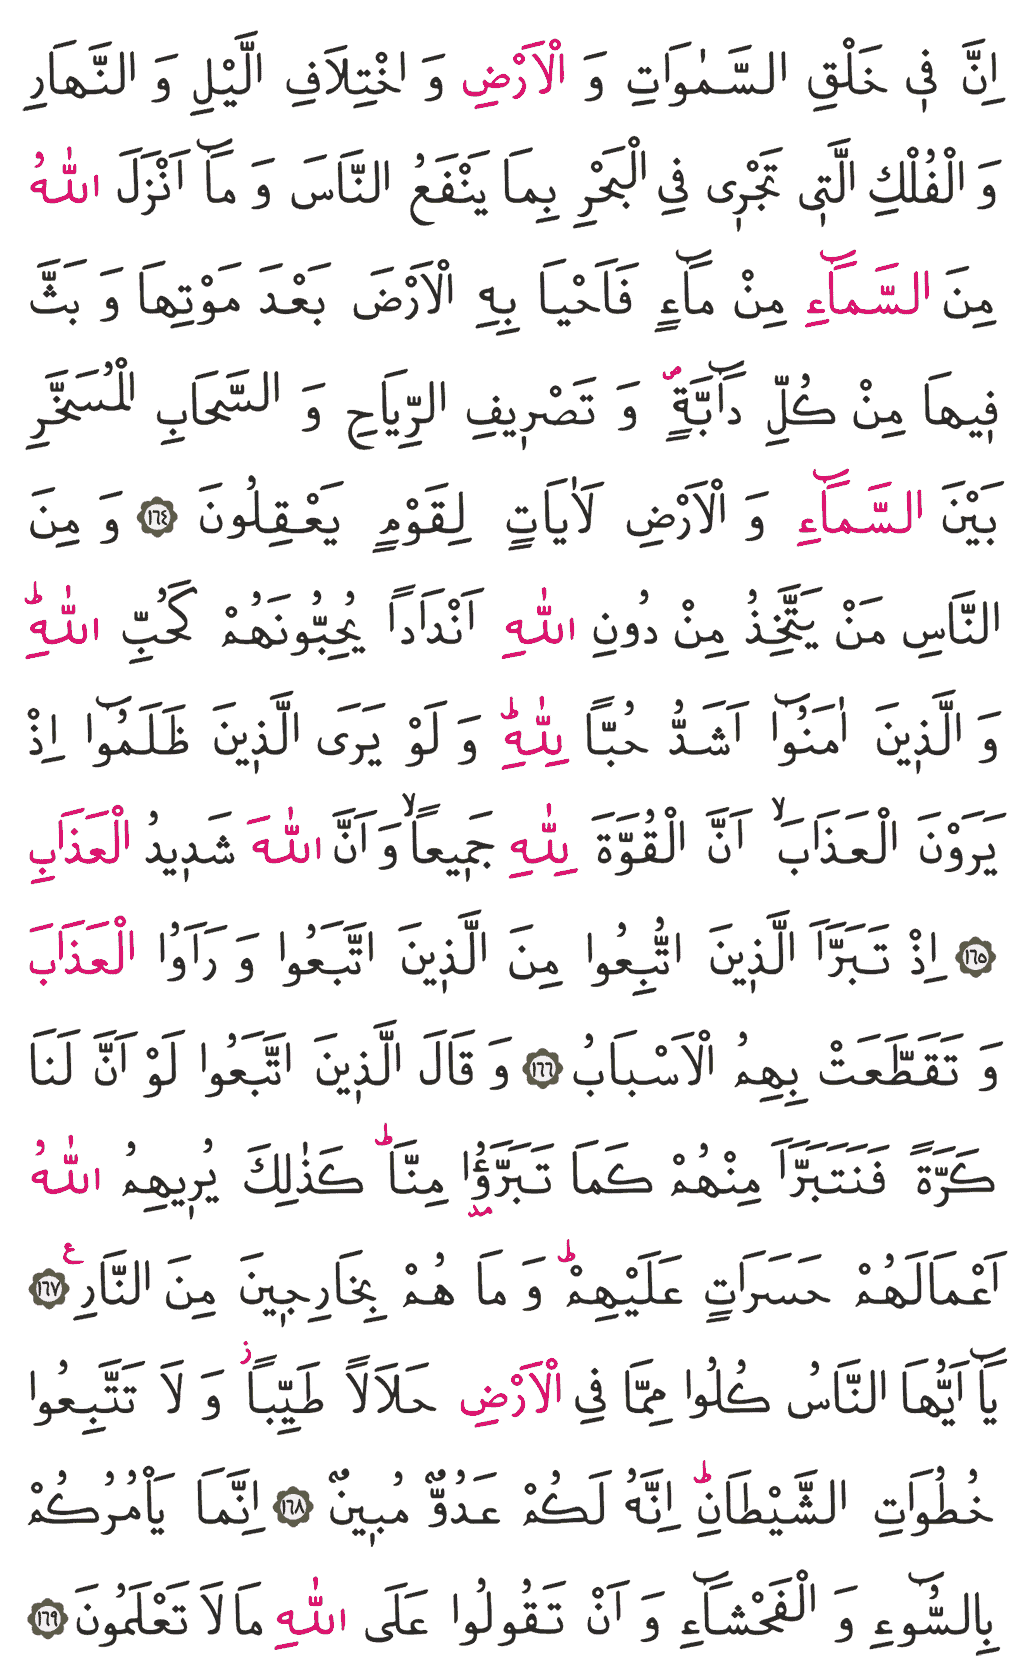 اِنَّ فٖي خَلْقِ السَّمٰوَاتِ وَ الْاَرْضِ وَ اخْتِلَافِ الَّيْلِ وَ النَّهَارِ
وَ الْفُلْكِ الَّتٖي تَجْرٖى فِي الْبَحْرِ بِمَا يَنْفَعُ النَّاسَ وَ مَٓا اَنْزَلَ اللّٰهُ
مِنَ السَّمَٓاءِ مِنْ مَٓاءٍ فَاَحْيَا بِهِ الْاَرْضَ بَعْدَ مَوْتِهَا وَ بَثَّ
فٖيهَا مِنْ كُلِّ دَٓابَّةٍࣕ وَ تَصْرٖيفِ الرِّيَاحِ وَ السَّحَابِ الْمُسَخَّرِ
بَيْنَ السَّمَٓاءِ وَ الْاَرْضِ لَاٰيَاتٍ لِقَوْمٍ يَعْقِلُونَ ﴿١٦٤﴾ وَ مِنَ
النَّاسِ مَنْ يَتَّخِذُ مِنْ دُونِ اللّٰهِ اَنْدَاداً يُحِبُّونَهُمْ كَحُبِّ اللّٰهِؕ
وَ الَّذٖينَ اٰمَنُٓوا اَشَدُّ حُبًّا لِلّٰهِؕ وَ لَوْ يَرَى الَّذٖينَ ظَلَمُٓوا اِذْ
يَرَوْنَ الْعَذَابَۙ اَنَّ الْقُوَّةَ لِلّٰهِ جَمٖيعاًۙ وَ اَنَّ اللّٰهَ شَدٖيدُ الْعَذَابِ
﴿١٦٥﴾ اِذْ تَبَرَّاَ الَّذٖينَ اتُّبِعُوا مِنَ الَّذٖينَ اتَّبَعُوا وَ رَاَوُا الْعَذَابَ
وَ تَقَطَّعَتْ بِهِمُ الْاَسْبَابُ ﴿١٦٦﴾ وَ قَالَ الَّذٖينَ اتَّبَعُوا لَوْ اَنَّ لَنَا
كَرَّةً فَنَتَبَرَّاَ مِنْهُمْ كَمَا تَبَرَّؤُ۫ا مِنَّاؕ كَذٰلِكَ يُرٖيهِمُ اللّٰهُ
اَعْمَالَهُمْ حَسَرَاتٍ عَلَيْهِمْؕ وَ مَا هُمْ بِخَارِجٖينَ مِنَ النَّارِࣖ ﴿١٦٧﴾
يَٓا اَيُّهَا النَّاسُ كُلُوا مِمَّا فِي الْاَرْضِ حَلَالاً طَيِّباًؗ وَ لَا تَتَّبِعُوا
خُطُوَاتِ الشَّيْطَانِؕ اِنَّهُ لَكُمْ عَدُوٌّ مُبٖينٌ ﴿١٦٨﴾ اِنَّمَا يَاْمُرُكُمْ
بِالسُّٓوءِ وَ الْفَحْشَٓاءِ وَ اَنْ تَقُولُوا عَلَى اللّٰهِ مَا لَا تَعْلَمُونَ ﴿١٦٩﴾